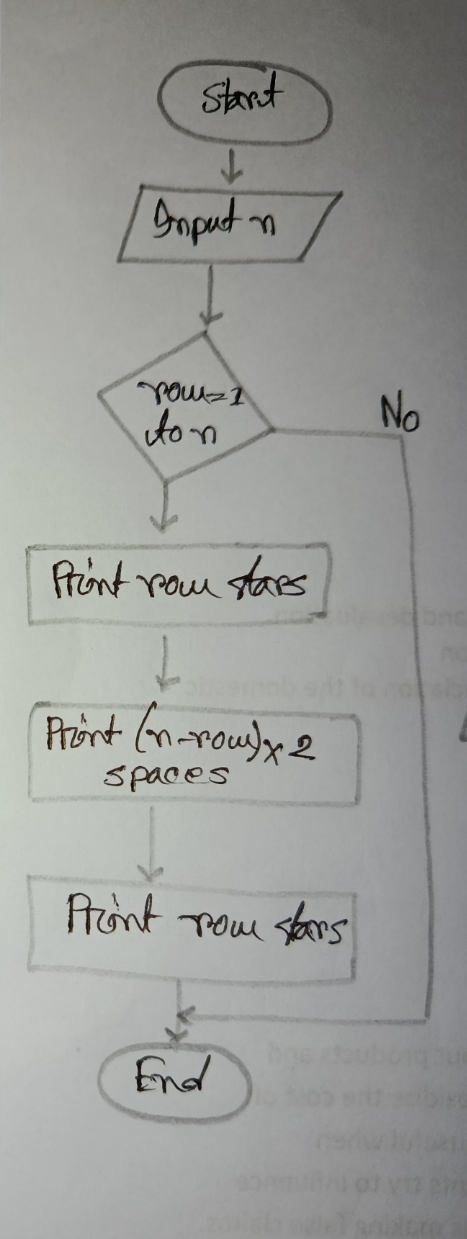 Start
Input n
row=1
to n
No
Print row stars
Print (n-row)x2
spaces
Print row stars
End